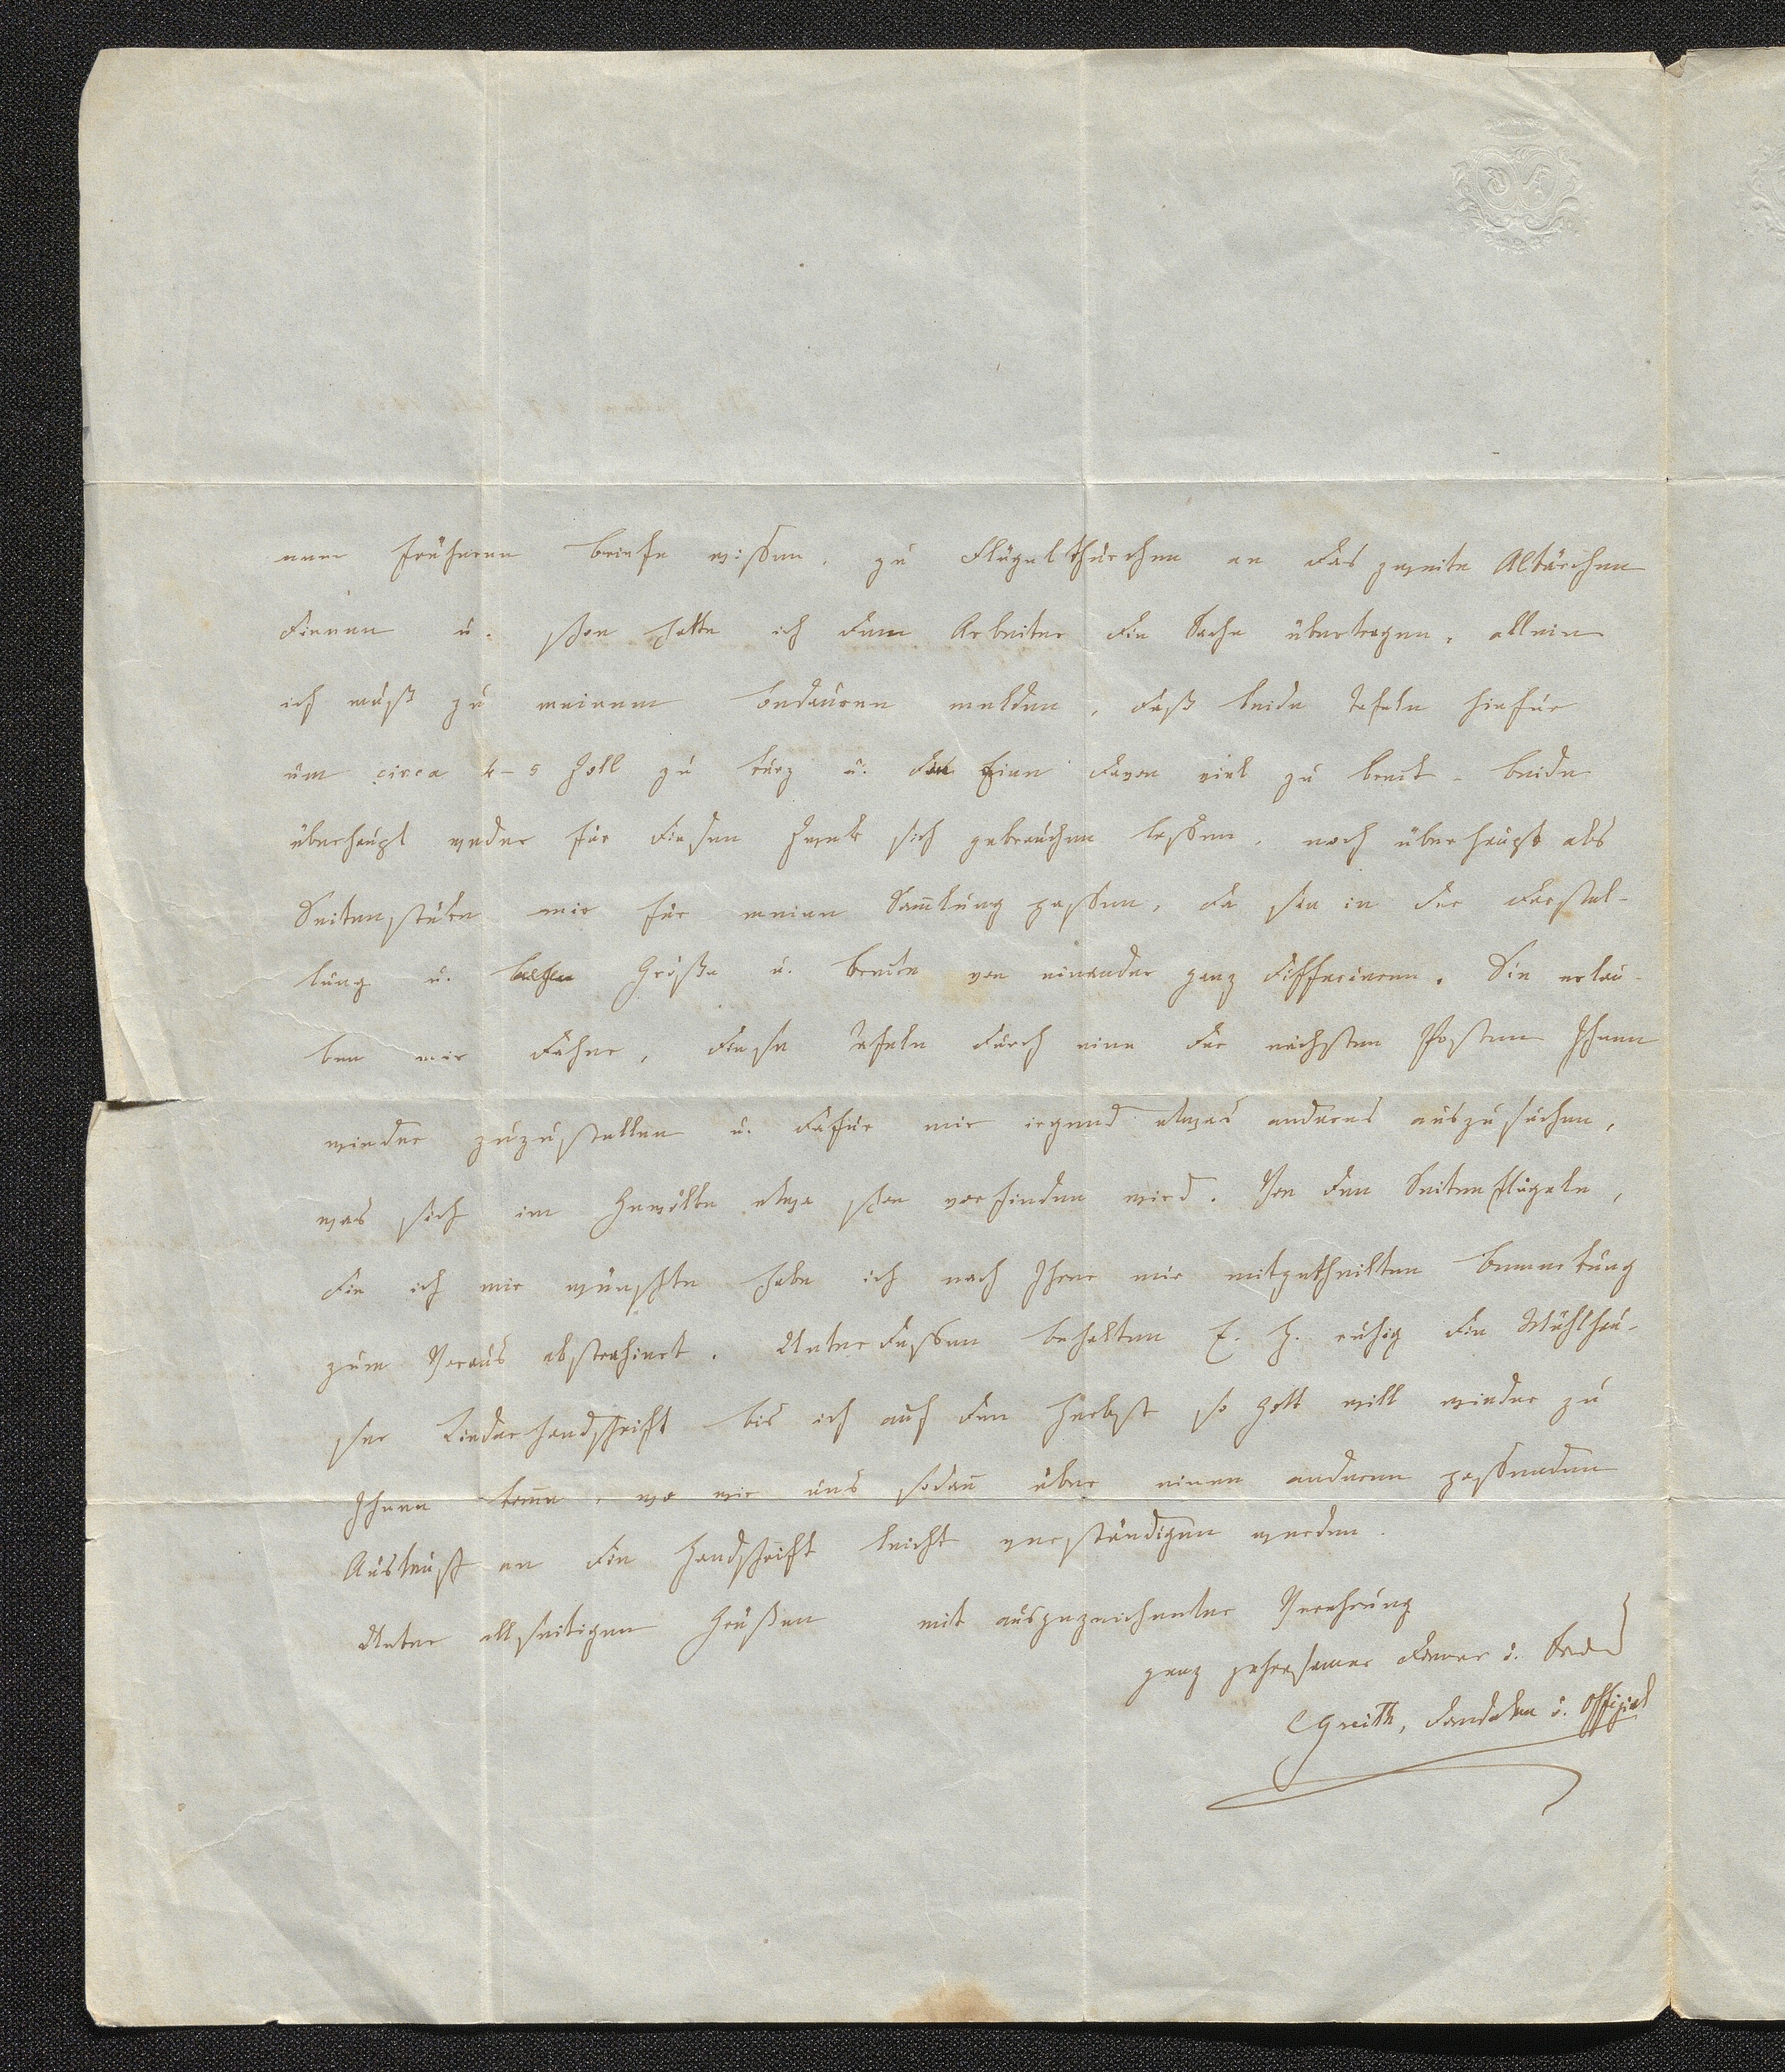 nem früheren Briefe wissen, zu Flügelthürchen an das zweite Altärchen
dienen u. schon hatte ich dem Arbeiter die Sache übertragen, allein
ich muß zu meinem Bedauren melden, daß beide Tafeln hiefür
um circa 4-5 Zoll zu kurz u. die eine davon viel zu breit - beide
überhaupt weder für diesen Zwek sich gebrauchen lassen, noch überhaupt als
Seitenstüke mir für meine Samlung passen, da sie in der Darstel-
lung u. Größe u. Breite von einander ganz differieren. Sie erlau-
ben mir daher, diese Tafeln durch eine der nächsten Posten Ihnen
wieder zuzustellen u. dafür mir irgend etwas anderes auszusuchen,
was sich im Gewölbe etwa schon vorfinden wird. Von den Seitenflügeln,
die ich mir wünschte habe ich nach Ihrer mir mitgetheilten Bemerkung
zum Voraus abstrahiert. Unterdessen behalten E. H. ruhig die Mühlhau-
ser Liederhandschrift bis ich auf den Herbst so Gott will wieder zu
Ihnen kome, wo wir uns sodan über einen anderen passenden
Austausch an die Handschrift leicht verständigen werden.
Unter allseitigen Grüßen mit ausgezeichneter Verehrung
ganz gehorsamer Diener u.
CGreith, Domdekan u. Offizial